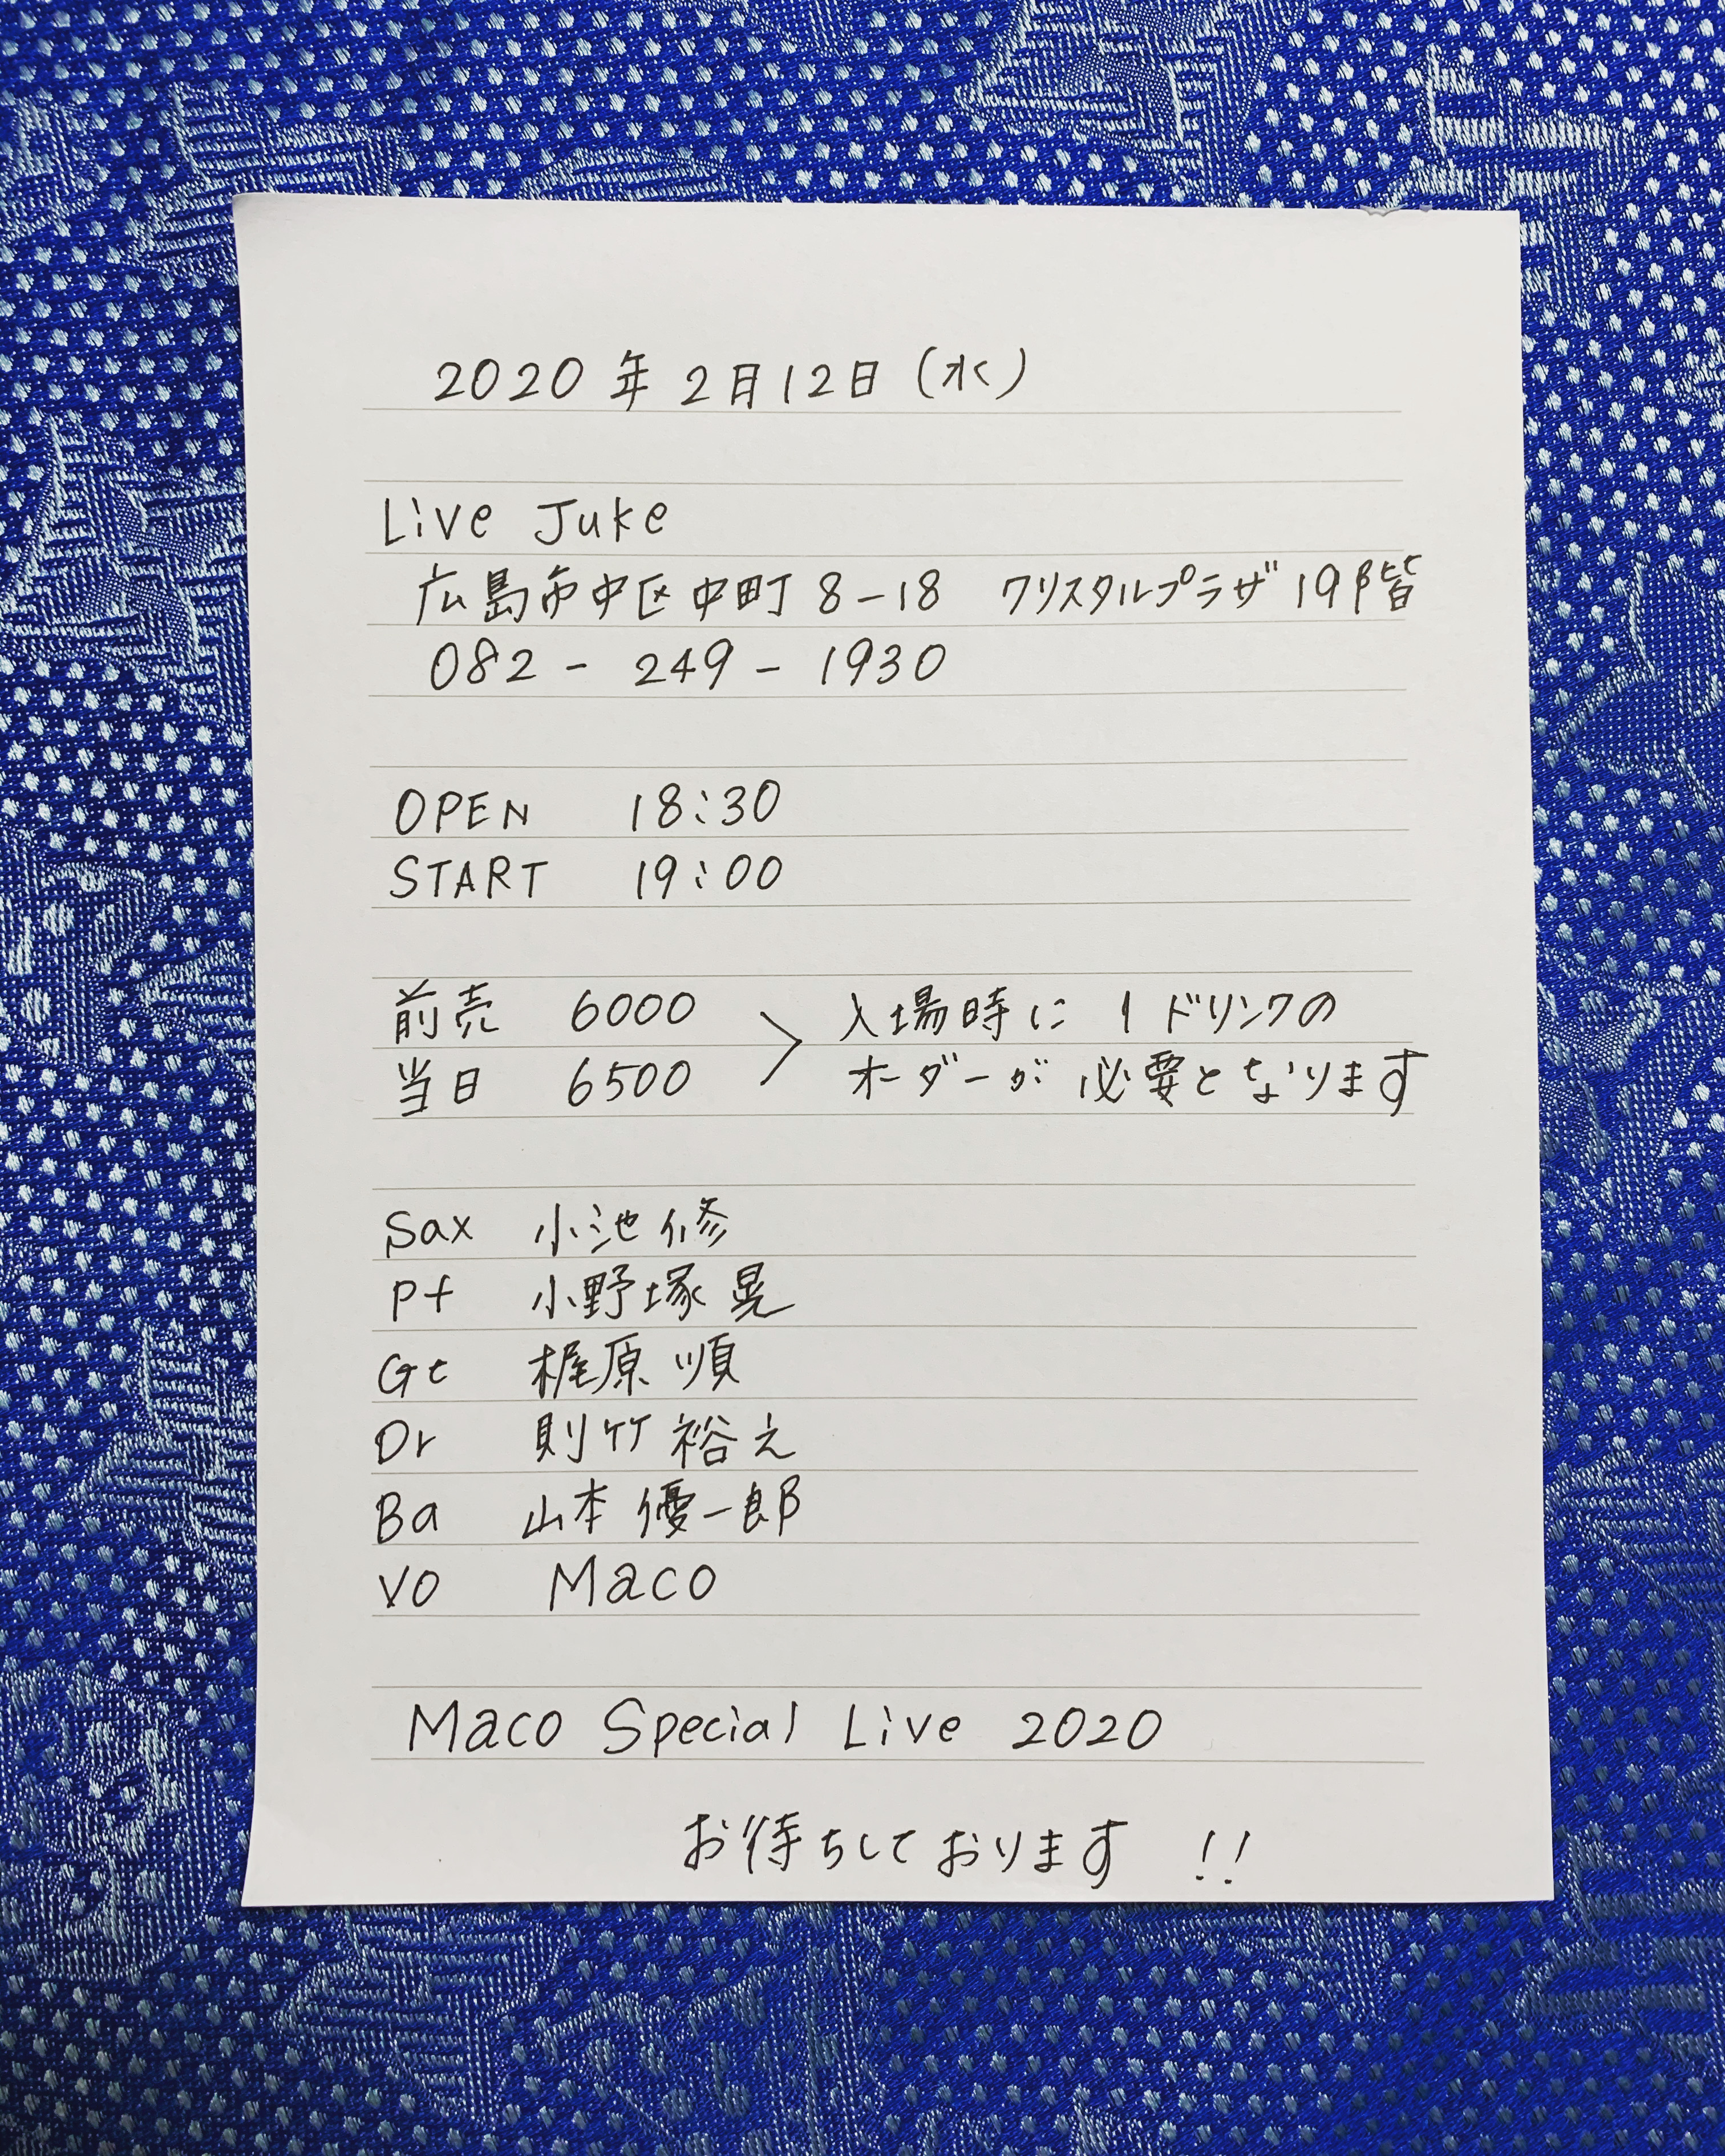 2020年2月12日(水)
Live Juke
広島市中区中町8-18 クリスタルプラザ19階
082-249-1930
OPEN 18:30
START 19:00
前売 6000 > 入場時に1ドリンクの
当日 6500 オーダーが必要となります
Sax 小池修
Pf 小野塚晃
Gt 梶原順
Dr 則竹裕之
Ba 山本優一郎
Vo Maco
Maco Special Live 2020
お待ちしております!!